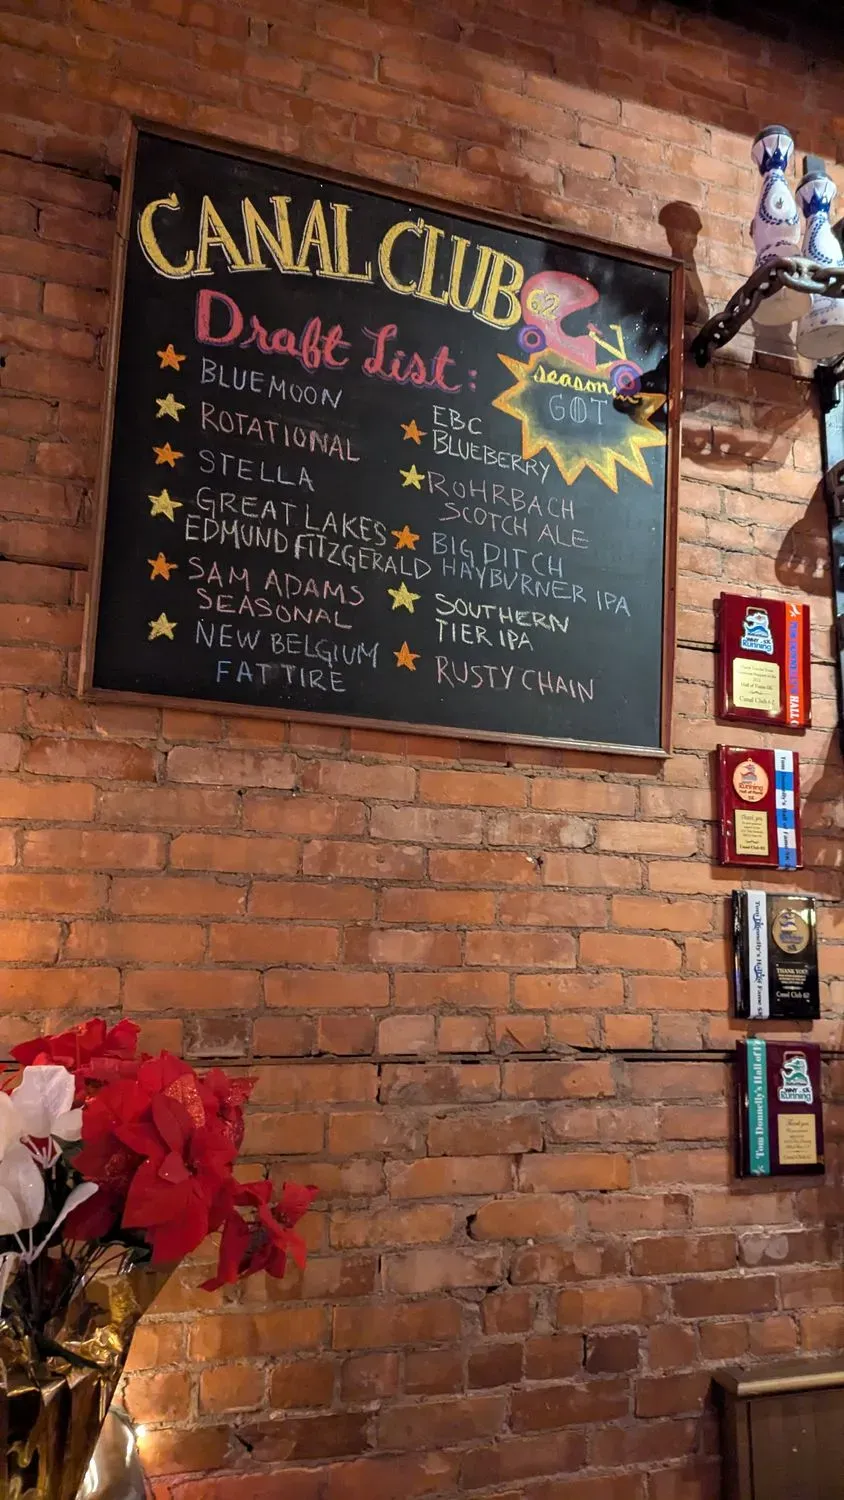 CANAL CLUB
62
Draft List:
BLUEMOON
ROTATIONAL
STELLA
GREAT LAKES
EDMUND FITZGERALD
SAM ADAMS
SEASONAL
NEW BELGIUM
FAT TIRE
EBC
BLUEBERRY
ROHRBACH
SCOTCH ALE
BIG DITCH
HAYBURNER IPA
SOUTHERN
TIER IPA
RUSTY CHAIN
GOT
Running
Hall of Fame 5K
Canal Club 62
Running
Thank you
Canal Club 62
Tom Donnelly's Hall of Fame 5K
THANK YOU!
Canal Club 62
Tom Donnelly's Hall of F
Running
Thank you